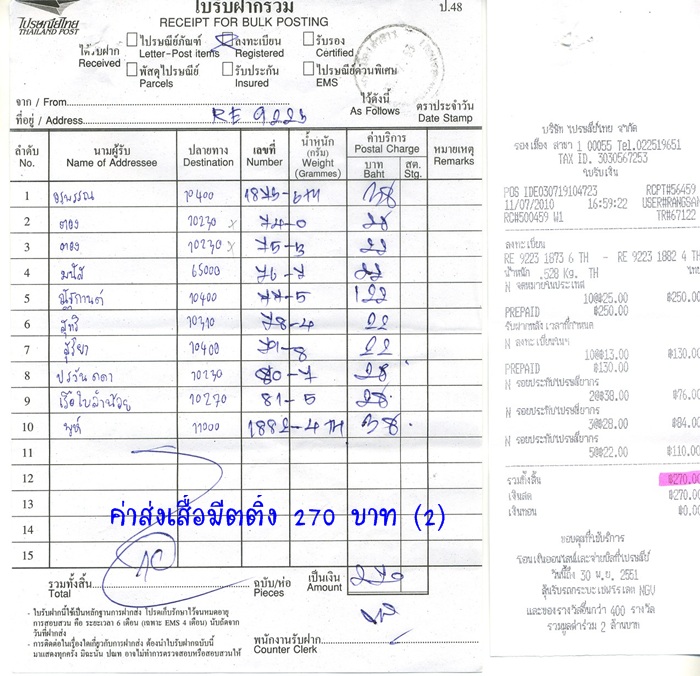 ไปรษณีย์ไทย
THAILAND POST
ใบรับฝากรวม
RECEIPT FOR BULK POSTING
ป.48
ได้รับฝาก
Received
ไปรษณีย์ภัณฑ์
Letter-Post items
ลงทะเบียน
Registered
รับรอง
Certified
พัสดุไปรษณีย์
Parcels
รับประกัน
Insured
ไปรษณีย์ด่วนพิเศษ
EMS
จาก / From
ที่อยู่ / Address
RE 9223
ไว้ดังนี้
As Follows
ตราประจำวัน
Date Stamp
ลำดับ No. นามผู้รับ Name of Addressee ปลายทาง Destination เลขที่ Number น้ำหนัก (กรัม) Weight (Grammes) ค่าบริการ Postal Charge บาท Baht สต. Stg. หมายเหตุ Remarks
1 อรพรรณ 10400 1873-6TH 38
2 ตอง 10230 x 74-0 28
3 ตอง 10230 x 75-3 22
4 มนัส 65000 76-7 22
5 10400 77-5 22
6 สุทธิ 10310 78-4 22
7 สุริยา 10400 79-8 22
8 10230 80-7 28
9 เรือใบลำน้อย 10270 81-5 28
10 11000 1882-4 TH 38
11
12
13
14
15
ค่าส่งเสื้อมีตติ้ง 270 บาท (2)
รวมทั้งสิ้น 10 ฉบับ/ห่อ เป็นเงิน 270
Total Pieces Amount
- ใบรับฝากนี้ใช้เป็นหลักฐานการฝากส่ง โปรดเก็บรักษาไว้จนหมดอายุ
การสอบสวน คือ ระยะเวลา 6 เดือน (เฉพาะ EMS 4 เดือน) นับถัดจาก
วันที่ฝากส่ง
- การติดต่อในเรื่องใดเกี่ยวกับการฝากส่ง ต้องนำใบรับฝากฉบับนี้
มาแสดงทุกครั้ง มิฉะนั้น ปณท อาจไม่ทำการตรวจสอบหรือสอบสวนให้
พนักงานรับฝาก
Counter Clerk
บริษัท ไปรษณีย์ไทย จำกัด
รองเมือง สาขา 1 00055 Tel.022519651
TAX ID. 3030567253
ใบรับเงิน
POS IDE030719104723 RCPT#56459
11/07/2010 16:59:22 USER#RANGSAN
RC#500459 W1 TR#67122
ลงทะเบียน
RE 9223 1873 6 TH - RE 9223 1882 4 TH
น้ำหนัก .528 Kg. TH
N จดหมายในประเทศ
10@฿25.00 ฿250.00
PREPAID ฿250.00
N ลงทะเบียนฯ
10@฿13.00 ฿130.00
PREPAID ฿130.00
N รอยประทับไปรษณียากร
2@฿38.00 ฿76.0
N รอยประทับไปรษณียากร
3@฿28.00 ฿84.0
N รอยประทับไปรษณียากร
5@฿22.00 ฿110.0
รวมทั้งสิ้น ฿270.0
เงินสด ฿270.0
เงินทอน ฿0.0
ขอบคุณที่ใช้บริการ
วันนี้ถึง 30 พ.ย. 2551
และของรางวัลอื่นกว่า 400 รางวัล
รวมมูลค่าร่วม 2 ล้านบาท